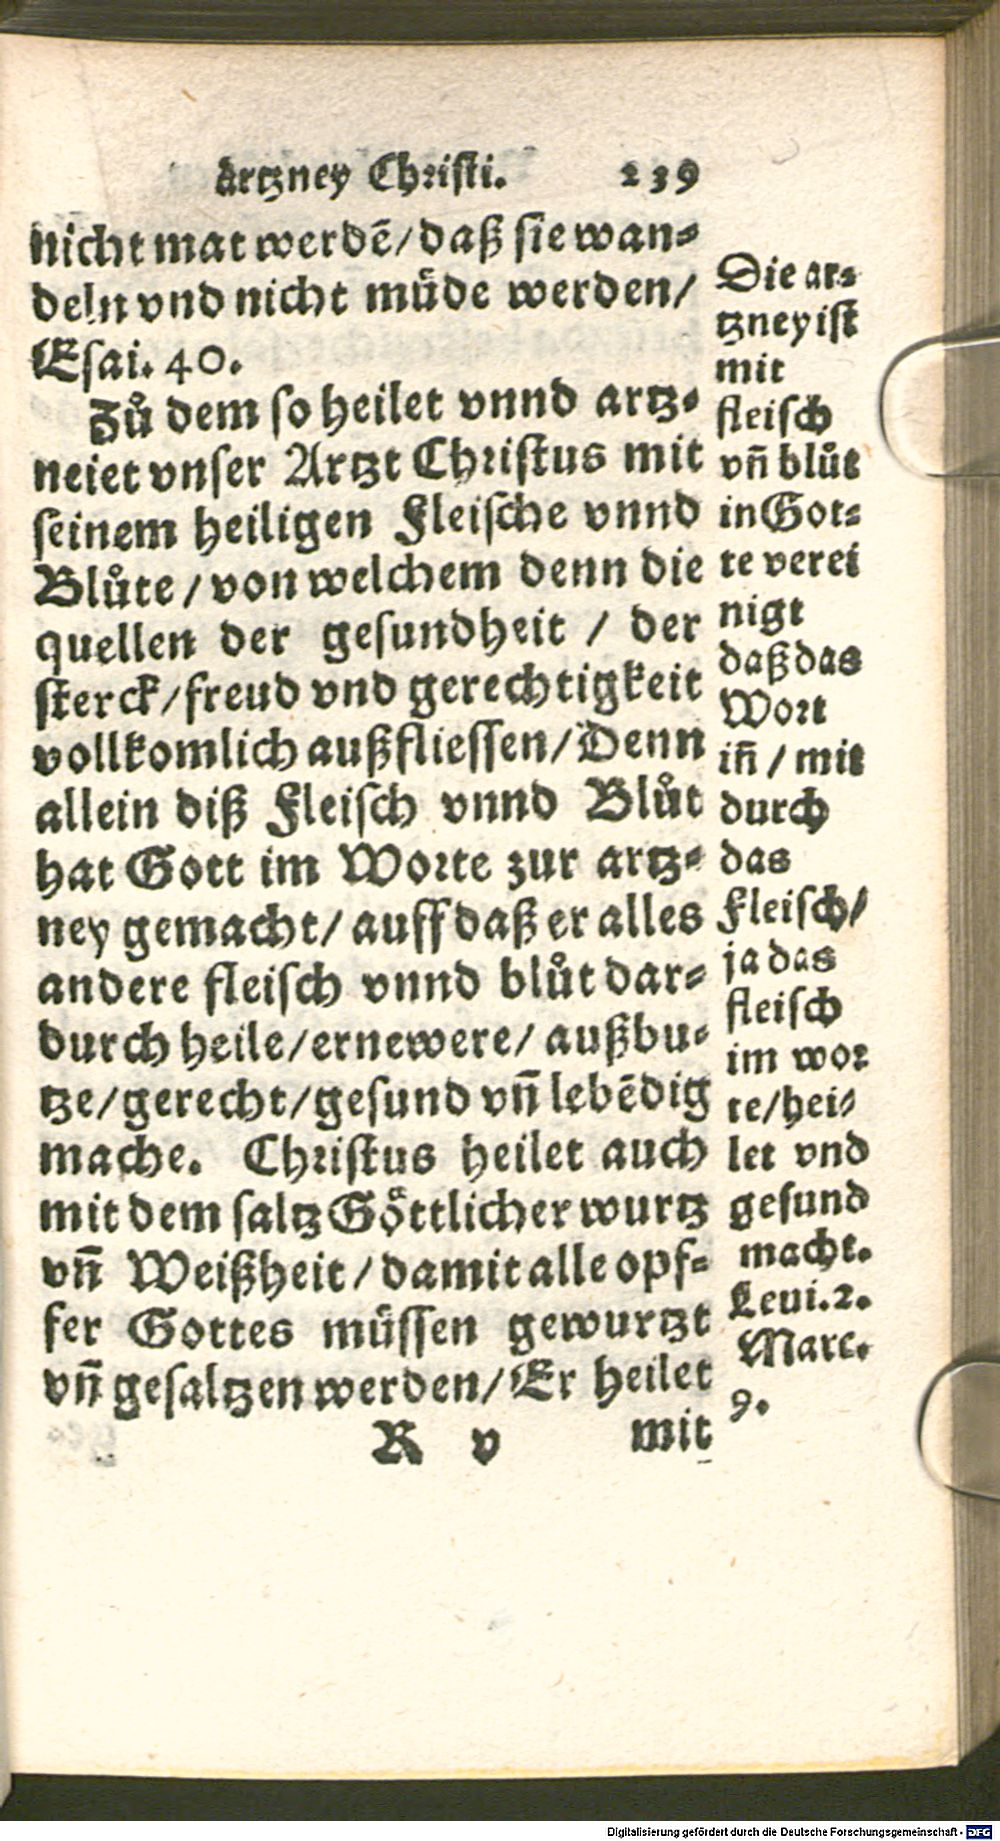 artzney Christi. 239
nicht mat werdē/daß sie wan⸗
deln vnd nicht müde werden/
Esai. 40.
Zů dem so heilet vnnd artz⸗
neiet vnser Artzt Christus mit
seinem heiligen Fleische vnnd
Blůte/von welchem denn die
quellen der gesundheit / der
sterck/freud vnd gerechtigkeit
vollkomlich außfliessen/Denn
allein diß Fleisch vnnd Blůt
hat Gott im Worte zur artz⸗
ney gemacht/auff daß er alles
andere fleisch vnnd blůt dar⸗
durch heile/ernewere/außbu⸗
tze/gerecht/gesund vn̄ lebēdig
mache. Christus heilet auch
mit dem saltz Göttlicher wurtz
vn̄ Weißheit/damit alle opf⸗
fer Gottes müssen gewurtzt
vn̄ gesaltzen werden/Er heilet
R v mit
Die ar⸗
tzney ist
mit
fleisch
vn̄ blůt
in Got⸗
te verei
nigt
daß das
Wort
in̄/mit
durch
das
Fleisch/
ja das
fleisch
im wor
te/hei⸗
let vnd
gesund
macht.
Leui.2.
Marc.
9.
Digitalisierung gefördert durch die Deutsche Forschungsgemeinschaft - DFG